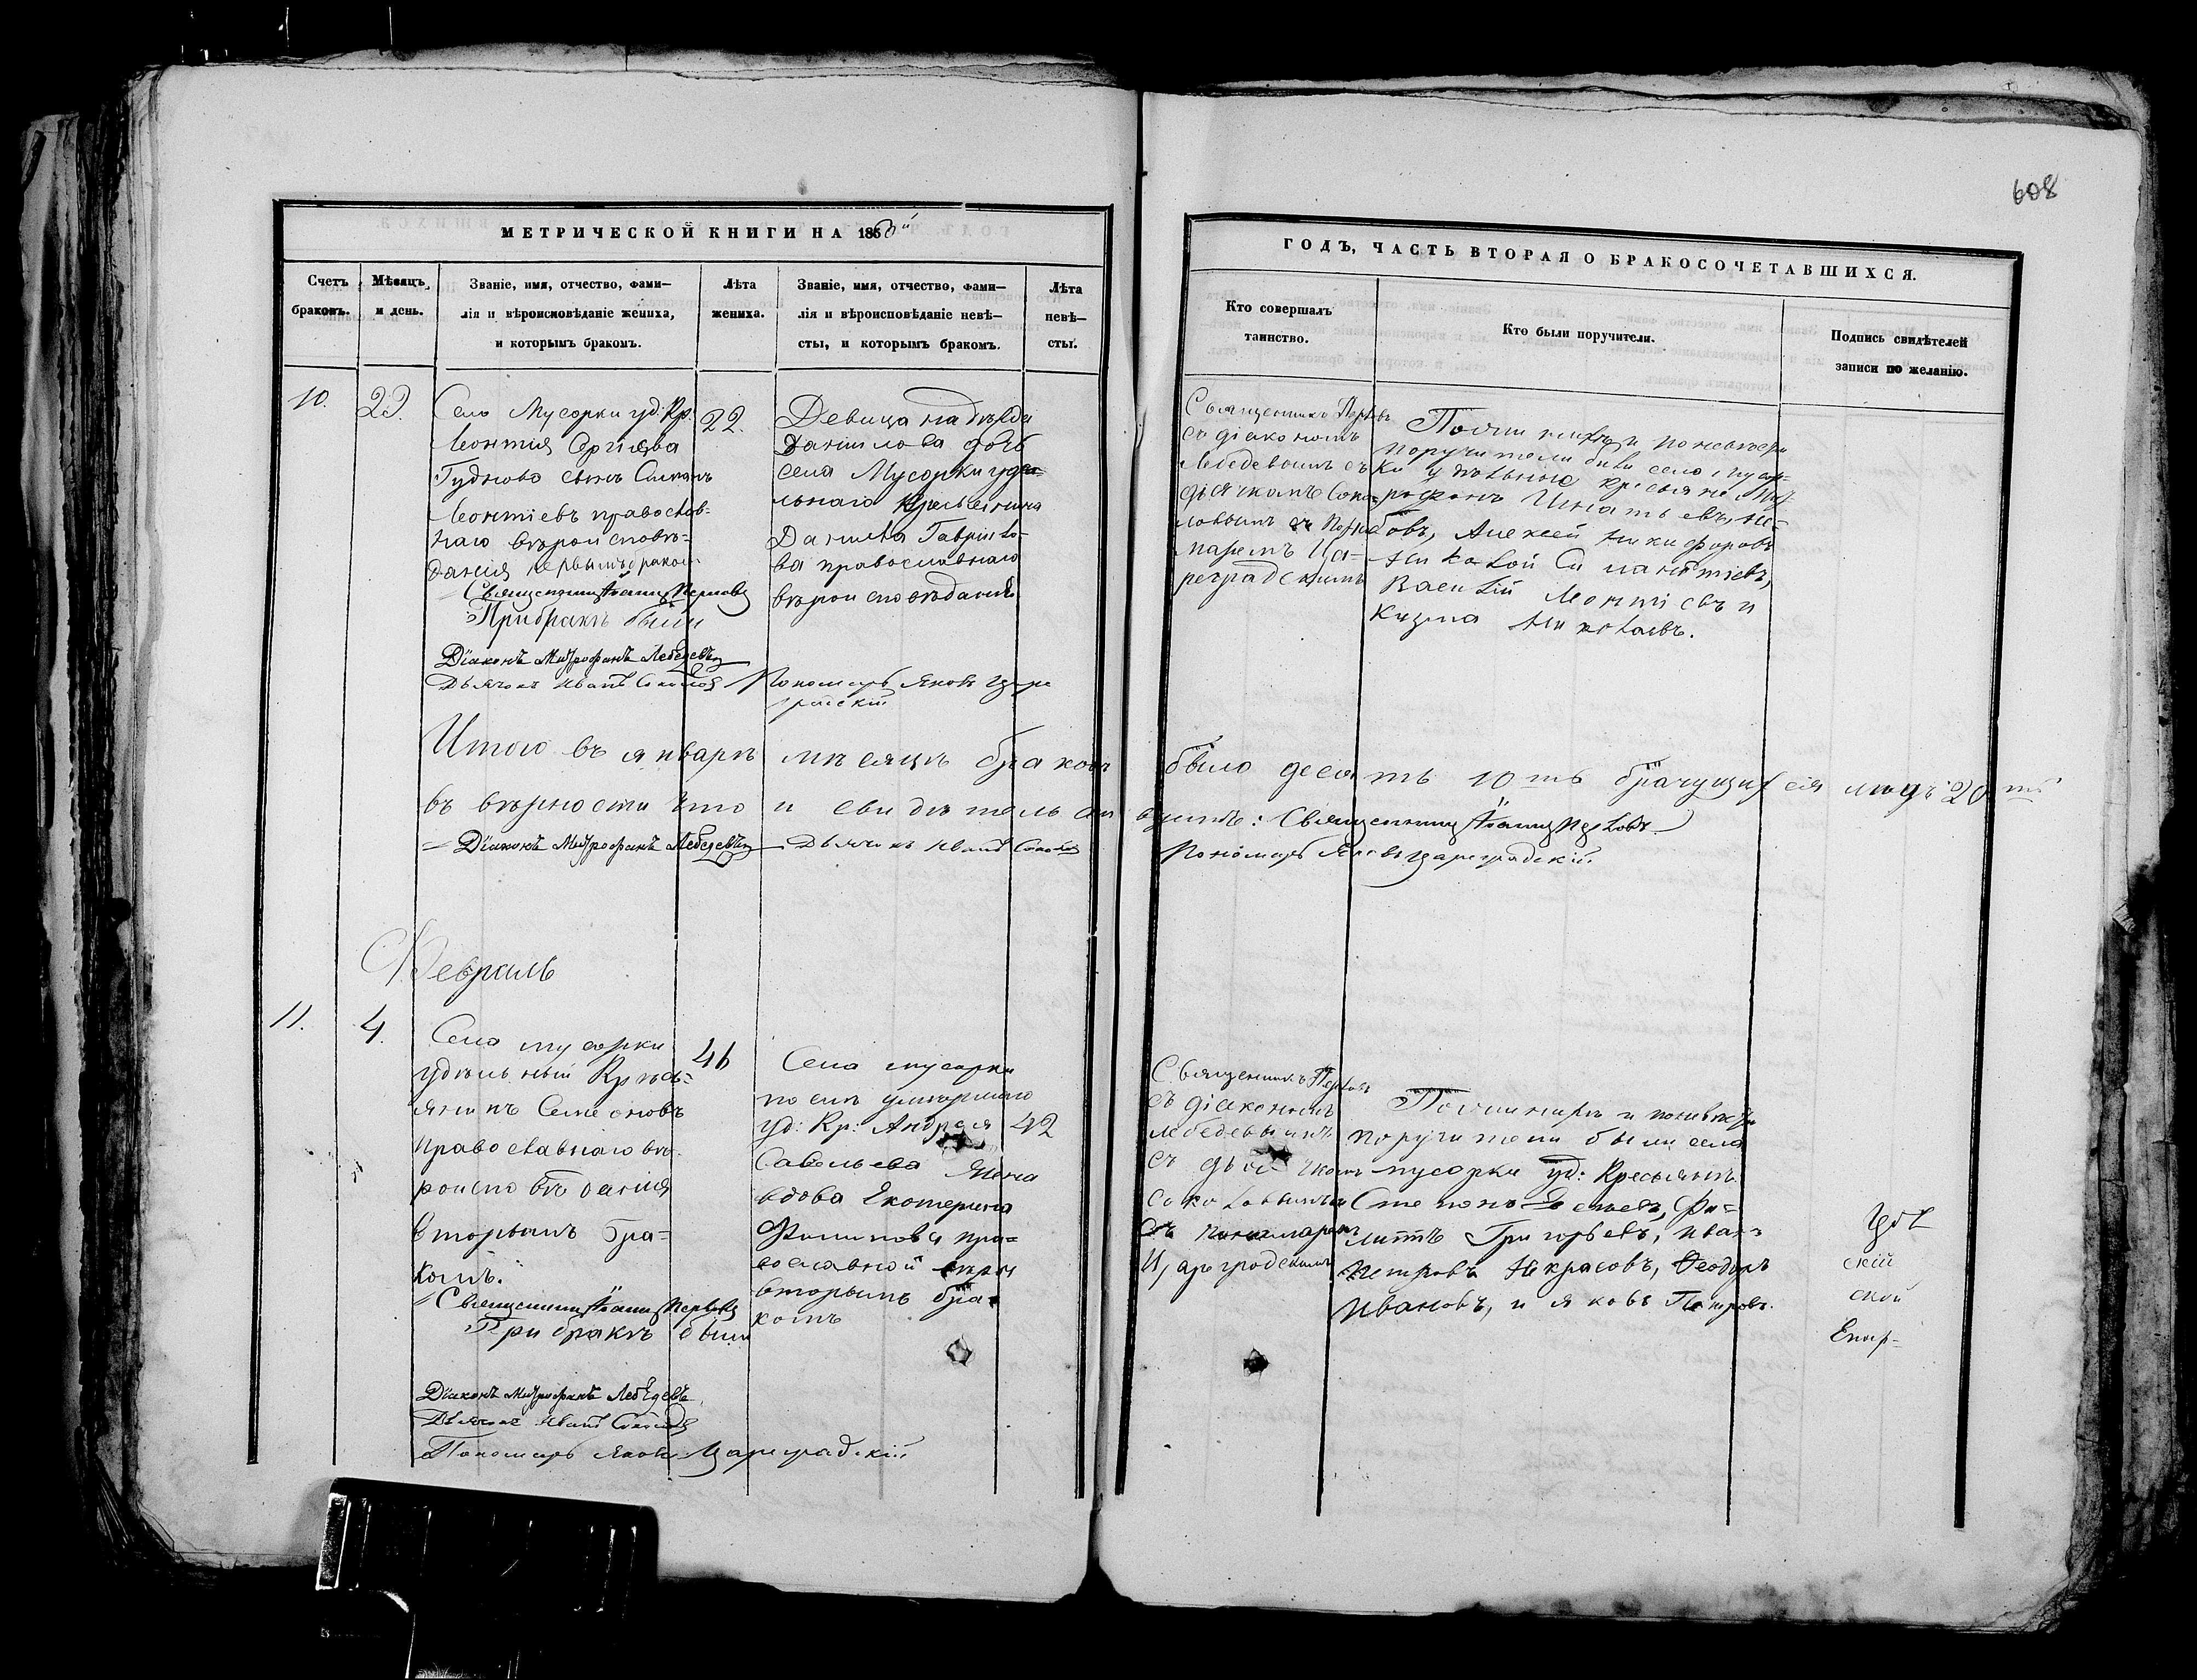 608
МЕТРИЧЕСКОЙ КНИГИ НА 185
Счетъ браковъ.
Мѣсяцъ и день.
Званіе, имя, отчество, фами—
лія и вѣроисповѣданіе жениха,
и которымъ бракомъ.
Лѣта
жениха.
Званіе, имя, отчество, фами—
лія и вѣроисповѣданіе невѣ—
сты, и которымъ бракомъ.
Лѣта
невѣ—
сты.
ГОДЪ, ЧАСТЬ ВТОРАЯ О БРАКОСОЧЕТАВШИХСЯ.
Кто совершалъ
таинство.
Кто были поручители.
Подпись свидѣтелей
записи по желанію.
10.
Село Мусорки уд. Кр.
Леонтія Сргіева
сынъ
Леонтіевъ православ-
наго вѣроисповѣ-
данія первымъ бракомъ
Священникъ
При бракѣ были
Діаконъ Митрофанъ Лебедевъ
Дьячокъ Иванъ
22.
Девица надѣжда
Данилова дочь
села Мусорки удѣ-
льнаго крестьянина
Данила Гаврило-
ва православнаго
вѣроисповѣданія
Пономарь Яковъ Царе
градскій
Священникъ
съ діакономъ
Лебедевымъ съ
діячкомъ Соко-
ловымъ съ Поно
маремъ Ца-
реградскимъ
По женихѣ и по невѣсте
поручители были села мусор-
ки удѣльные крестьяне
Игнатьевъ,
Алексей Никифоровъ
Николай
Василій Леонтіевъ и
Кузма Николаевъ.
Итого въ январѣ мѣсяцѣ браковъ было десять 10ть брачущихся лицъ 20ть
въ вѣрности что и свидѣтельствуемъ: Священникъ
Діаконъ Митрофанъ Лебедевъ Дьячокъ Иванъ
Пономарь Яковъ Цареградскій.
Февраль
11.
4.
Села мусорки
удѣльный Крѣсть-
янинъ Семеоновъ
православнаго вѣ-
роисповѣданія
вторымъ бра-
комъ.
Священникъ
При бракѣ были
Діаконъ Митрофанъ Лебедевъ
Дьячокъ Иванъ
Пономарь Яковъ Цареградскій
46
Села мусорки
после умершаго
уд: Кр: Андрея
Савельева жена
вдова Екотерина
Филипова пра-
вославной вѣры
вторымъ бра-
комъ
42
Священникъ
съ діакономъ
лебедевымъ
съ дьячкомъ
соколовымъ
съ пономаремъ
Цареградскимъ
По женихѣ и по невѣсте
поручители были села
мусорки уд: Кресьянъ
Степонъ
Григорьевъ, Иванъ
Петровъ Некрасовъ, Феодоръ
Ивановъ, и яковъ Петровъ.
скій
ской
Епар-